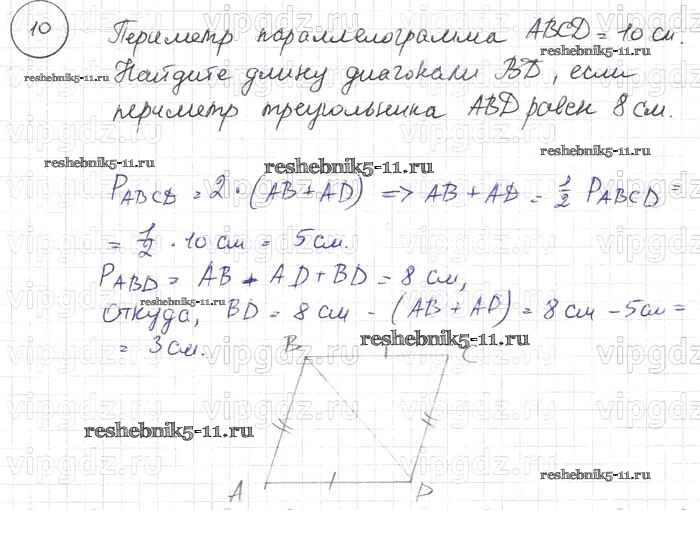 10
Периметр параллелограмма ABCD = 10 см.
reshebnik5-11.ru
Найдите длину диагонали BD, если
периметр треугольника ABD равен 8 см.
reshebnik5-11.ru
reshebnik5-11.ru
reshebnik5-11.ru
P ABCD = 2 · (AB + AD) => AB + AD = 1/2 P ABCD =
= 1/2 · 10 см = 5 см.
P ABD = AB + AD + BD = 8 см,
reshebnik5-11.ru
откуда, BD = 8 см - (AB + AD) = 8 см - 5 см =
= 3 см.
reshebnik5-11.ru
B C
reshebnik5-11.ru
reshebnik5-11.ru
A D
vipgdz.ru